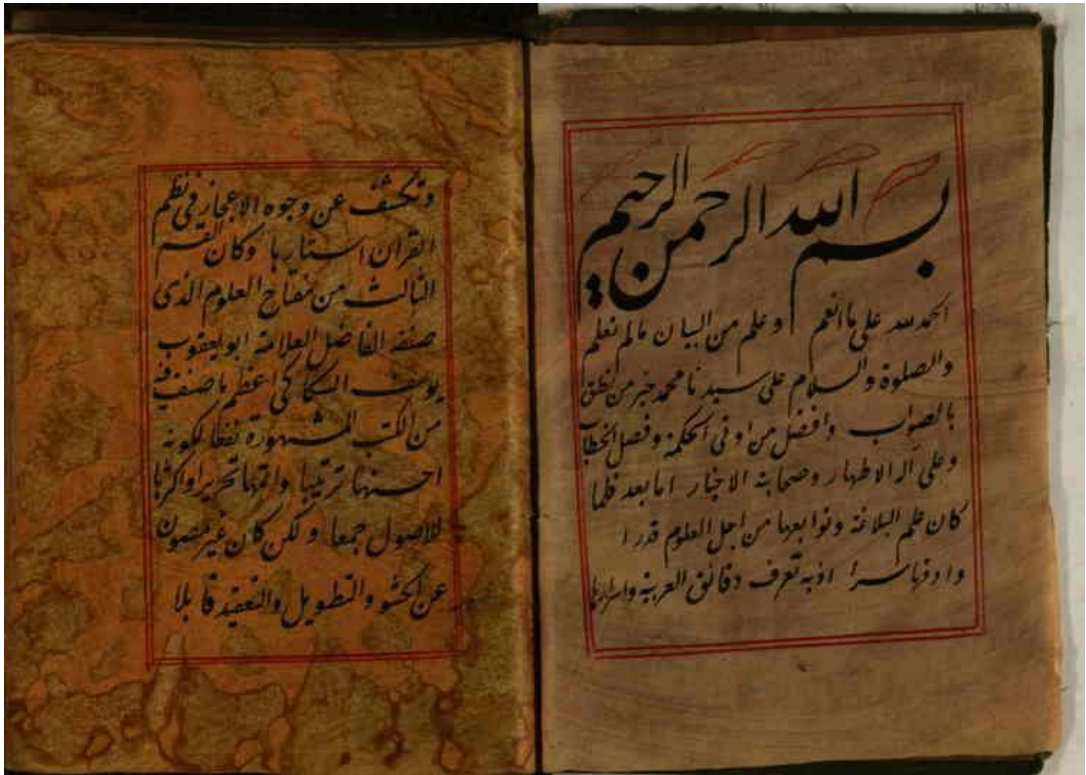 بسم الله الرحمن الرحيم
الحمد لله على ما انعم وعلم من البيان مالم نعلم
والصلوة والسلام على سيدنا محمد خير من نطق
بالصواب وافضل من اوتى الحكمة وفصل الخطاب
وعلى آله الاطهار وصحابته الاخيار اما بعد فلما
كان علم البلاغة وتوابعها من اجل العلوم قدرا
وادقها سرا اذ به تعرف دقائق العربية واسرارها
وتكشف عن وجوه الاعجاز فى نظم
القران استارها وكان القسم
الثالث من مفتاح العلوم الذى
صنفه الفاضل العلامة ابو يعقوب
يوسف السكاكى اعظم ما صنف فيه
من الكتب المشهورة نفعا لكونه
احسنها ترتيبا واتمها تحريرا واكثرها
للاصول جمعا ولكن كان غير مصون
عن الحشو والتطويل والتعقيد قابلا